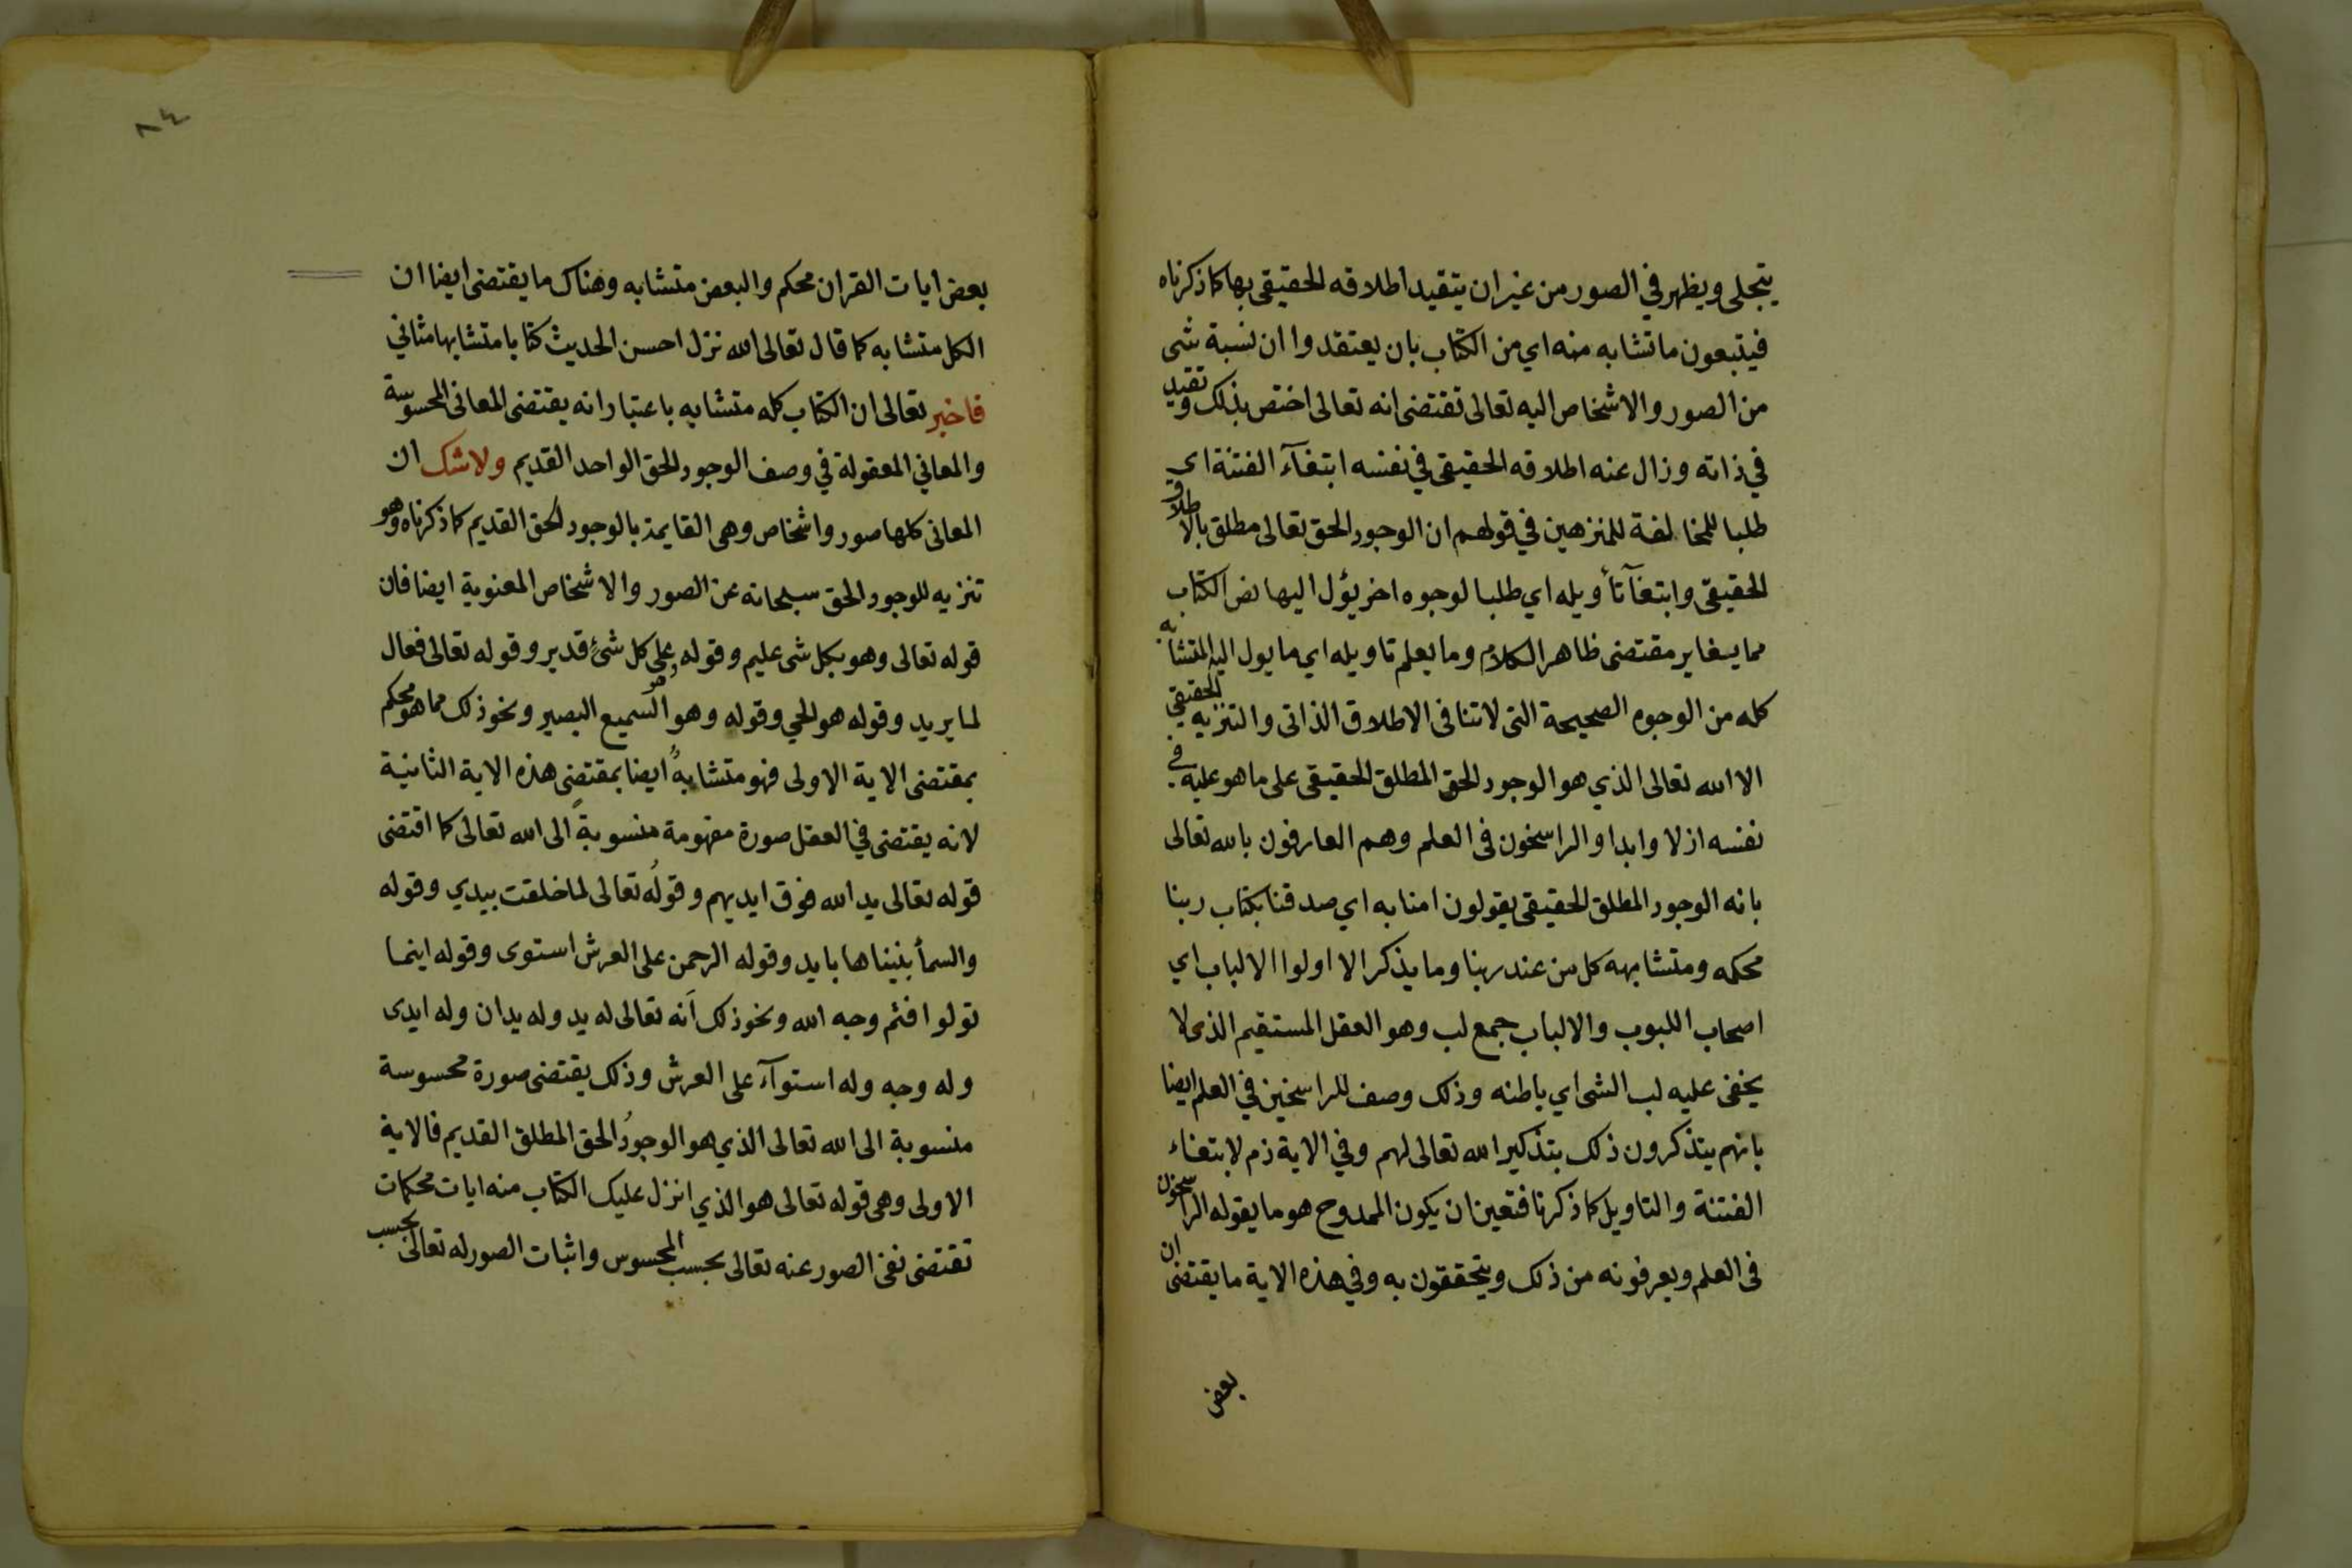 يتجلى ويظهر في الصور من غير ان يتقيد اطلاقه الحقيقي بها كما ذكرناه
فيتبعون ما تشابه منه اي من الكتاب بان يعتقدوا ان نسبة شى
من الصور والاشخاص اليه تعالى تقتضى انه تعالى اختص بذلك وتقيد
في ذاته وزال عنه اطلاقه الحقيقى في نفسه ابتغآء الفتنة اي
طلبا للمخالفة للمنزهين في قولهم ان الوجود الحق تعالى مطلق بالاطلاق
الحقيقى وابتغآ تأويله اي طلبا لوجوه اخر يؤل اليها نص الكتاب
مما يغاير مقتضى ظاهر الكلام وما يعلم تاويله اي ما يول اليه المتشابه
كله من الوجوه الصحيحة التى لا تنافى الاطلاق الذاتى والتنزيه الحقيقي
الا الله تعالى الذي هو الوجود الحق المطلق الحقيقى على ما هو عليه في
نفسه ازلا وابدا والراسخون فى العلم وهم العارفون بالله تعالى
بانه الوجود المطلق الحقيقى يقولون امنا به اي صدقنا بكتاب ربنا
محكمه ومتشابهه كل من عند ربنا وما يذكر الا اولوا الالباب اي
اصحاب اللبوب والالباب جمع لب وهو العقل المستقيم الذى لا
يخفى عليه لب الشى اي باطنه وذلك وصف للراسخين في العلم ايضا
بانهم يتذكرون ذلك بتذكير الله تعالى لهم وفي الاية ذم لابتغاء
الفتنة والتاويل كما ذكرنا فتعين ان يكون الممدوح هو ما يقوله الراسخون
فى العلم ويعرفونه من ذلك ويتحققون به وفي هذه الاية ما يقتضى ان
بعض
٨٤
بعض ايات القران محكم والبعض متشابه وهناك ما يقتضى ايضا ان
الكل متشابه كما قال تعالى الله نزل احسن الحديث كتابا متشابها مثاني
فاخبر تعالى ان الكتاب كله متشابه باعتبار انه يقتضى المعانى المحسوسة
والمعاني المعقولة في وصف الوجود الحق الواحد القديم ولا شك ان
المعانى كلها صور واشخاص وهى القايمة بالوجود الحق القديم كما ذكرناه وهو
تنزيه للوجود الحق سبحانه عن الصور والاشخاص المعنوية ايضا فان
قوله تعالى وهو بكل شى عليم وقوله وهو على كل شئ قدير وقوله تعالى فعال
لما يريد وقوله هو الحي وقوله وهو السميع البصير ونحو ذلك مما هو محكم
بمقتضى الاية الاولى فهو متشابهٌ ايضا بمقتضى هذه الاية الثانية
لانه يقتضى في العقل صورة مفهومة منسوبةً الى الله تعالى كما اقتضى
قوله تعالى يد الله فوق ايديهم وقولُه تعالى لما خلقت بيدي وقوله
والسمأ بنيناها بايد وقوله الرحمن على العرش استوى وقوله اينما
تولوا فثم وجه الله ونحو ذلك اَنه تعالى له يد وله يدان وله ايدى
وله وجه وله استوآء على العرش وذلك يقتضى صورة محسوسة
منسوبة الى الله تعالى الذي هو الوجودُ الحق المطلق القديم فالاية
الاولى وهى قوله تعالى هو الذي انزل عليك الكتاب منه ايات محكمات
تقتضى نفى الصور عنه تعالى بحسب المحسوس واثبات الصور له تعالى بحسب